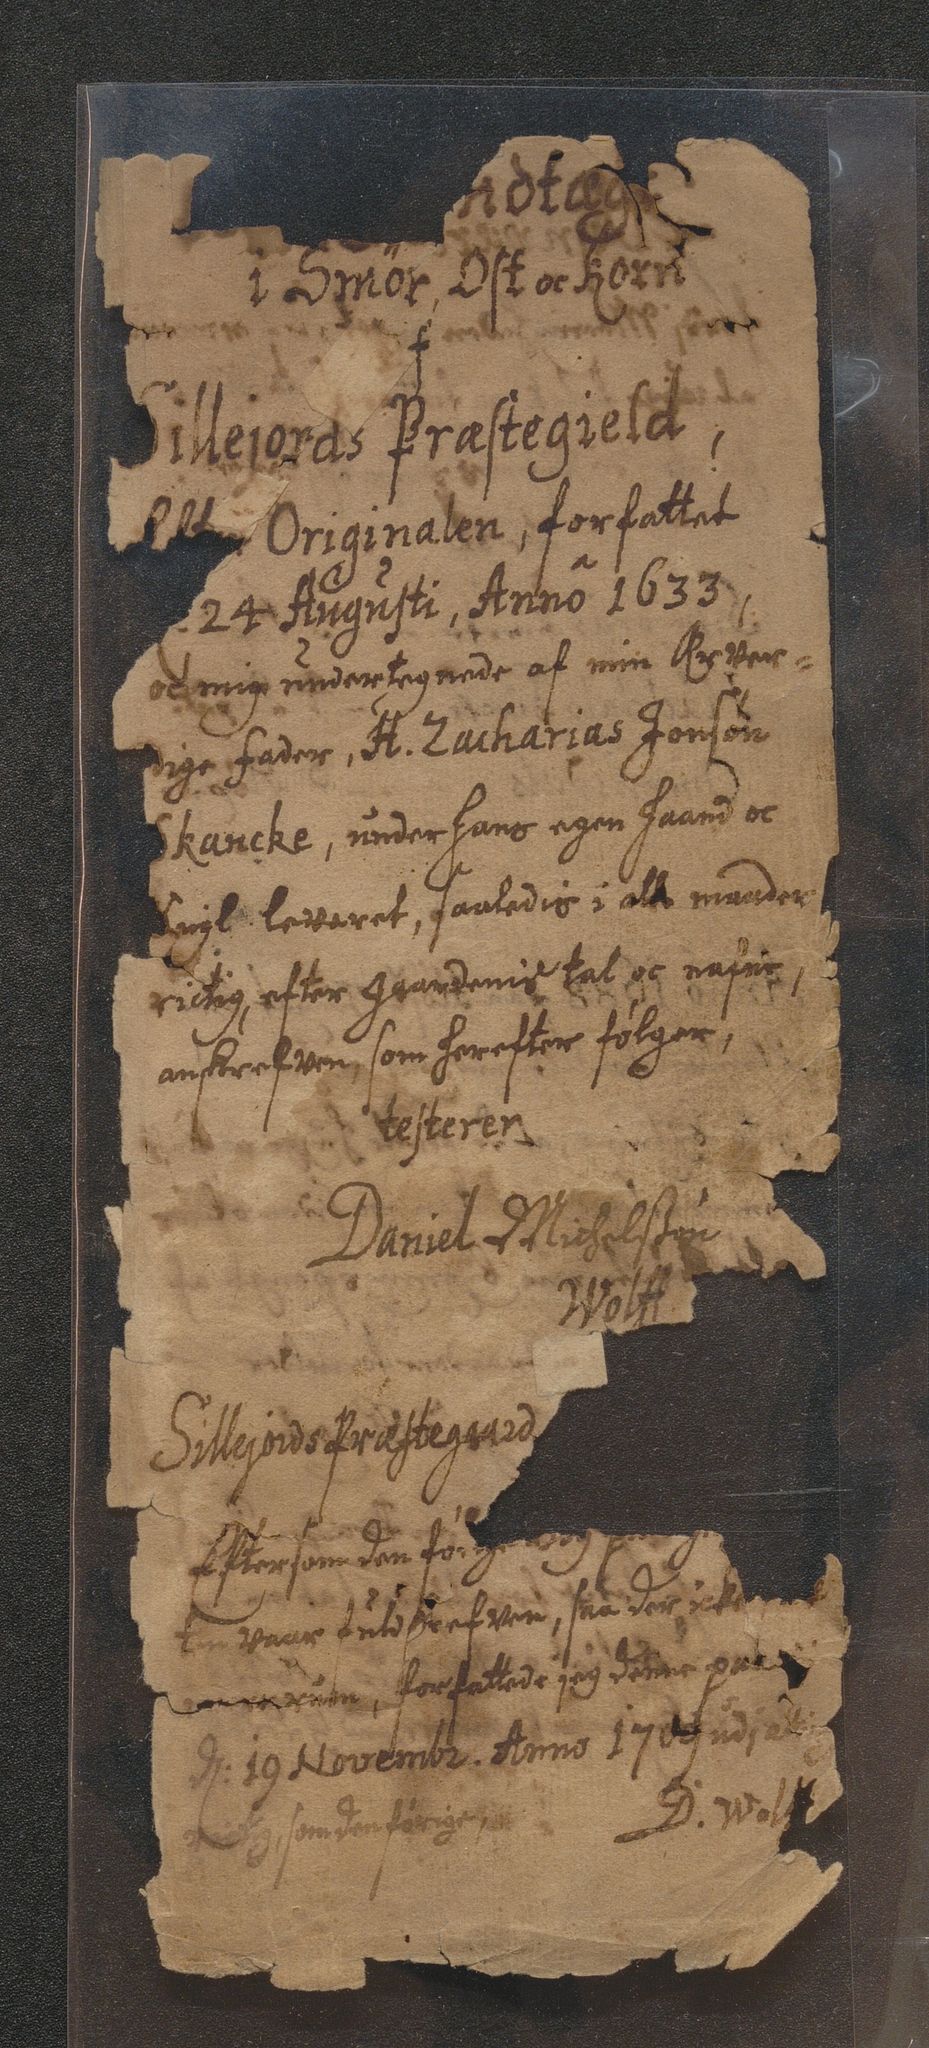 ndtægt
i Smör, Ost oc Korn
f
Sillejords Præstegield,
Originalen, forfattet
24 Augusti, Anno 1633,
oc mig undertegnede af min Ærver=
dige fader, H. Zacharias Jonsön
Skancke, under hans egen haand oc
Seigl leveret, saaledis i alle maader
rictig, efter gaardenis tal oc nafne,
anskrefven, som herefter følger,
testerer
Daniel Michelssön
Wolff
Sillejords Præstegaard
Eftersom den
vaar fuldskrefven, saa der icke
ruum, forfattede jeg denne paa
d: 19 Novembr. Anno 1709 udj alting
som den förige,
D. Wolff